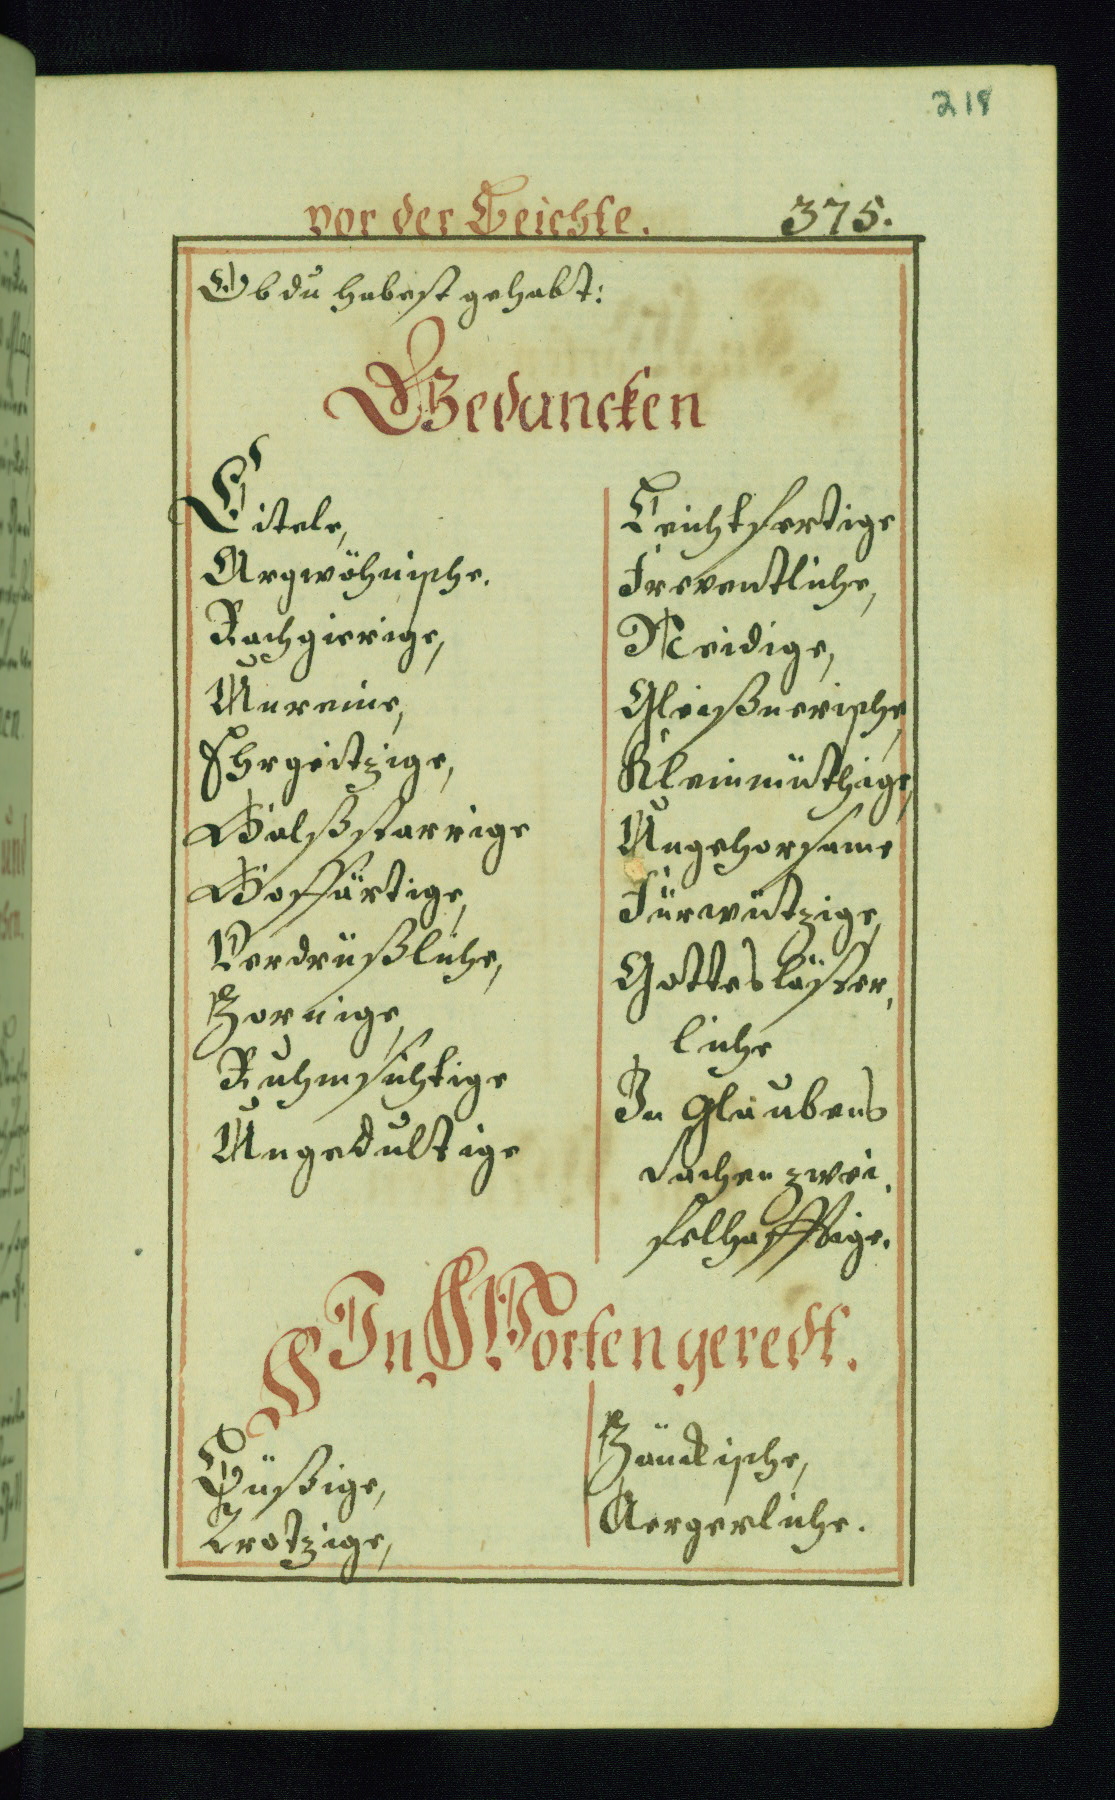 218
vor der Beichte. 375.
Ob du habest gehabt:
Gedancken
Eitele,
Argwöhnische.
Rachgierige,
Unreine,
Ehrgeitzige,
Halßstarrige
Hoffärtige,
Verdrüßliche,
Zornige,
Ruhmsüchtige
Ungedultige
Leichtfertige
Freventliche,
Neidige,
Gleißnerische,
Kleinmüthige,
Ungehorsame
Fürwützige,
Gotteslässer,
liche
In Glaubens
sachen zwei,
felhafftige.
In Worten geredt.
Trotzige,
Zänckische,
Aergerliche.